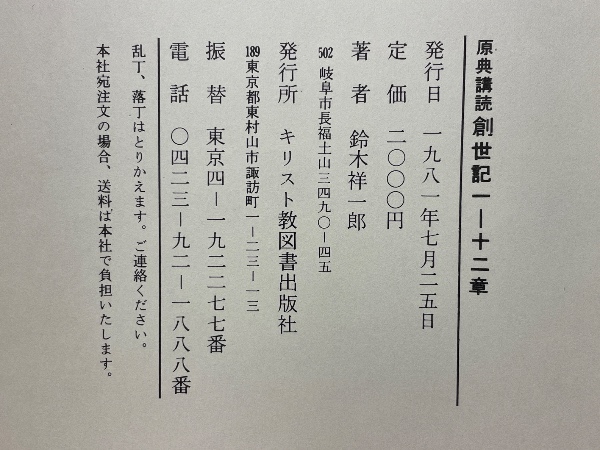 原典講読 創世記 一―十二章
発行日 一九八一年七月二五日
定価 二〇〇〇円
著者 鈴木祥一郎
502 岐阜市長福土山三四九〇―四五
発行所 キリスト教図書出版社
189 東京都東村山市諏訪町一―二三―一三
振替 東京四―一九二二七七番
電話 〇四二三―九二―一八八八番
乱丁、落丁はとりかえます。ご連絡ください。
本社宛注文の場合、送料は本社で負担いたします。